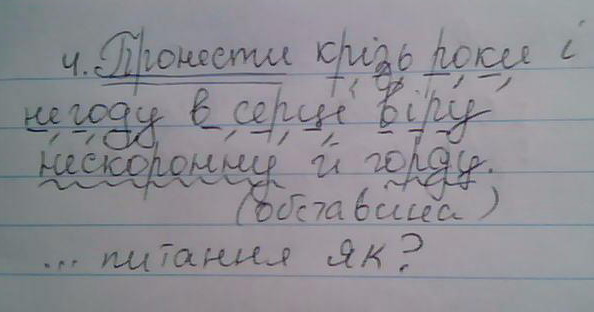 4. Пронести крізь роки і
негоду в серце віру
нескоронну й горду.
(обставина)
... питання як?